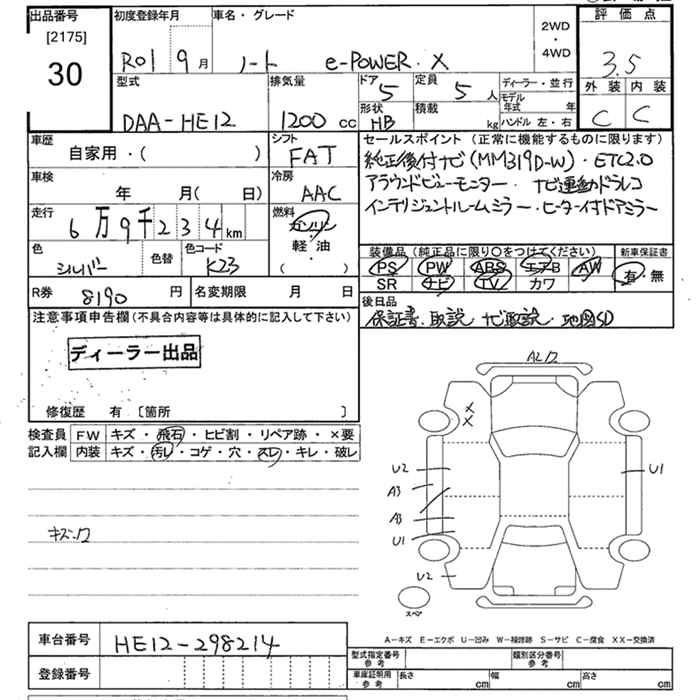 出品番号 初度登録年月 車名・グレード 2WD・4WD 評価点
[2175]
30 R01 9月 ノート e-POWER・X 3.5
型式 排気量 ドア 定員 ディーラー・並行 外装 内装
DAA-HE12 1200cc 5 5人 モデル年式 年 C C
形状 積載 ハンドル 左・右
HB kg
車歴 シフト セールスポイント (正常に機能するものに限ります)
自家用・( ) FAT 純正後付ナビ(MM319D-W)・ETC2.0
車検 冷房 アラウンドビューモニター・ナビ連動ドラレコ
年 月( 日) AAC インテリジェントルームミラー・ヒーター付ドアミラー
走行 燃料
6万9千234km ガソリン
軽・油
( )
色 色替 色コード 装備品 (純正品に限り○をつけてください) 新車保証書
シルバー K23 PS PW ABS エアB AW 有・無
SR ナビ TV カワ
R券 8190円 名変期限 月 日 後日品
保証書、取説、ナビ取説、地図SD
注意事項申告欄(不具合内容等は具体的に記入して下さい)
ディーラー出品
修復歴 有〔箇所 〕
検査員 FW キズ・飛石・ヒビ割・リペア跡・×要
記入欄 内装 キズ・汚レ・コゲ・穴・スレ・キレ・破レ
X
X
U2
U1
A3
A3
U1
キズ
U2
スペア
A-キズ E-エクボ U-凹み W-補修跡 S-サビ C-腐食 XX-交換済
車台番号 HE12-298214 型式指定番号 参考 類別区分番号 参考
登録番号 車庫証明用 参考 長さ cm 幅 cm 高さ cm